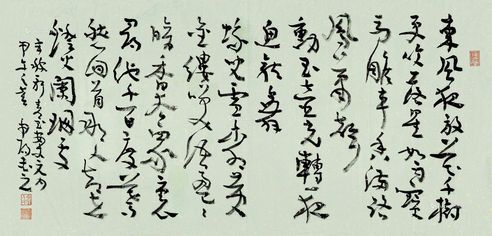 東風夜放花千樹
更吹落星如雨寶
馬雕車香滿路
鳳簫聲
動玉壺光轉一夜
魚龍舞
蛾兒雪柳黃
金縷笑語盈盈
暗香去眾裏
尋他千百度驀
然回首那人卻在
燈火闌珊處
辛棄疾青玉案元夕
甲午